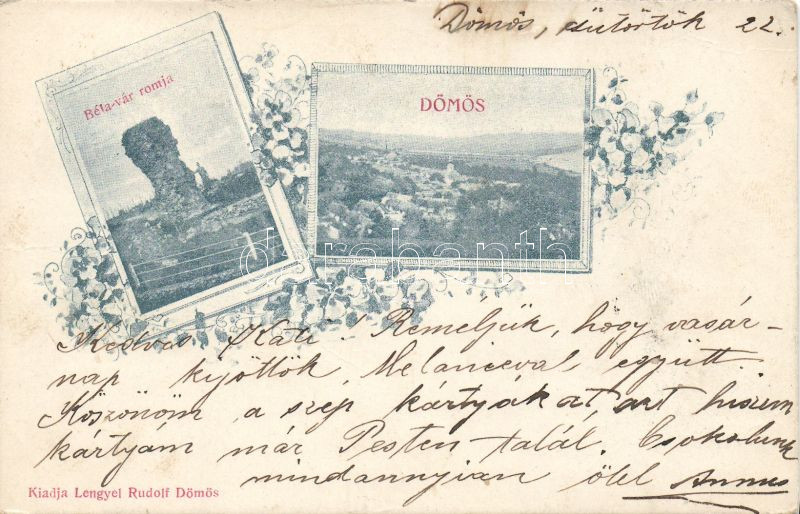 Dömös, sütörtök 22.
Béla-vár romja
DÖMÖS
darabanth
Kedves Kati! Remeljük, hogy vasár-
nap kijöttök, Melanieval együtt.
Köszönöm a szép kártyákat, azt hiszem
kártyám már Pesten talál. Csokolunk
mindannyian ölel Annus
Kiadja Lengyel Rudolf Dömös